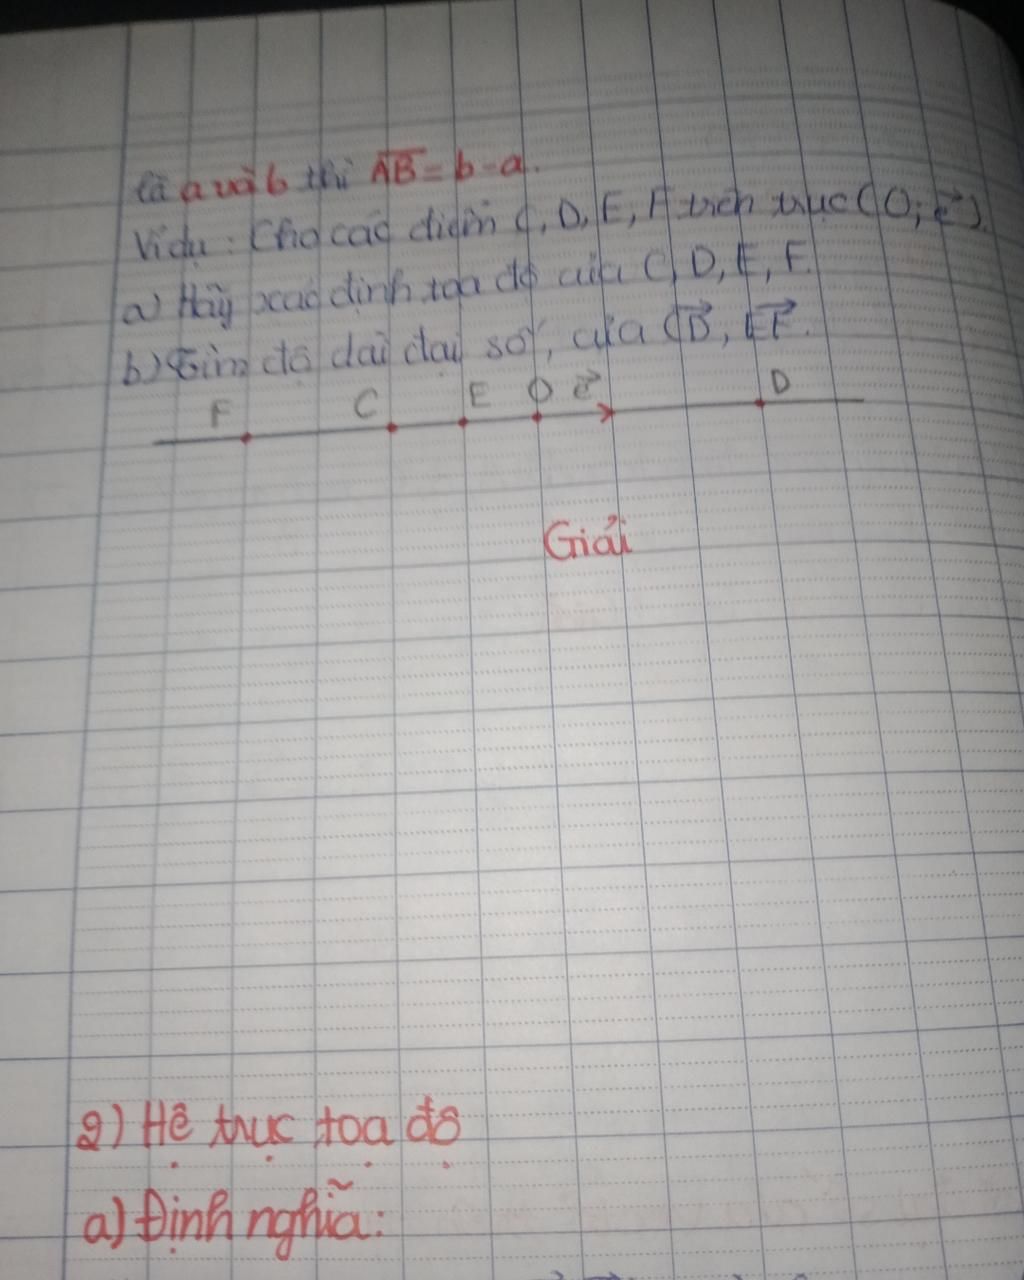 là a và b thì AB = b - a.
Ví dụ: Cho các điểm C, D, E, F trên trục (O; e⃗).
a) Hãy xác định tọa độ của C, D, E, F.
b) Tìm độ dài đại số, của CD⃗, EF⃗.
F C E O e⃗ D
Giải
2) Hệ trục tọa độ
a) Định nghĩa: